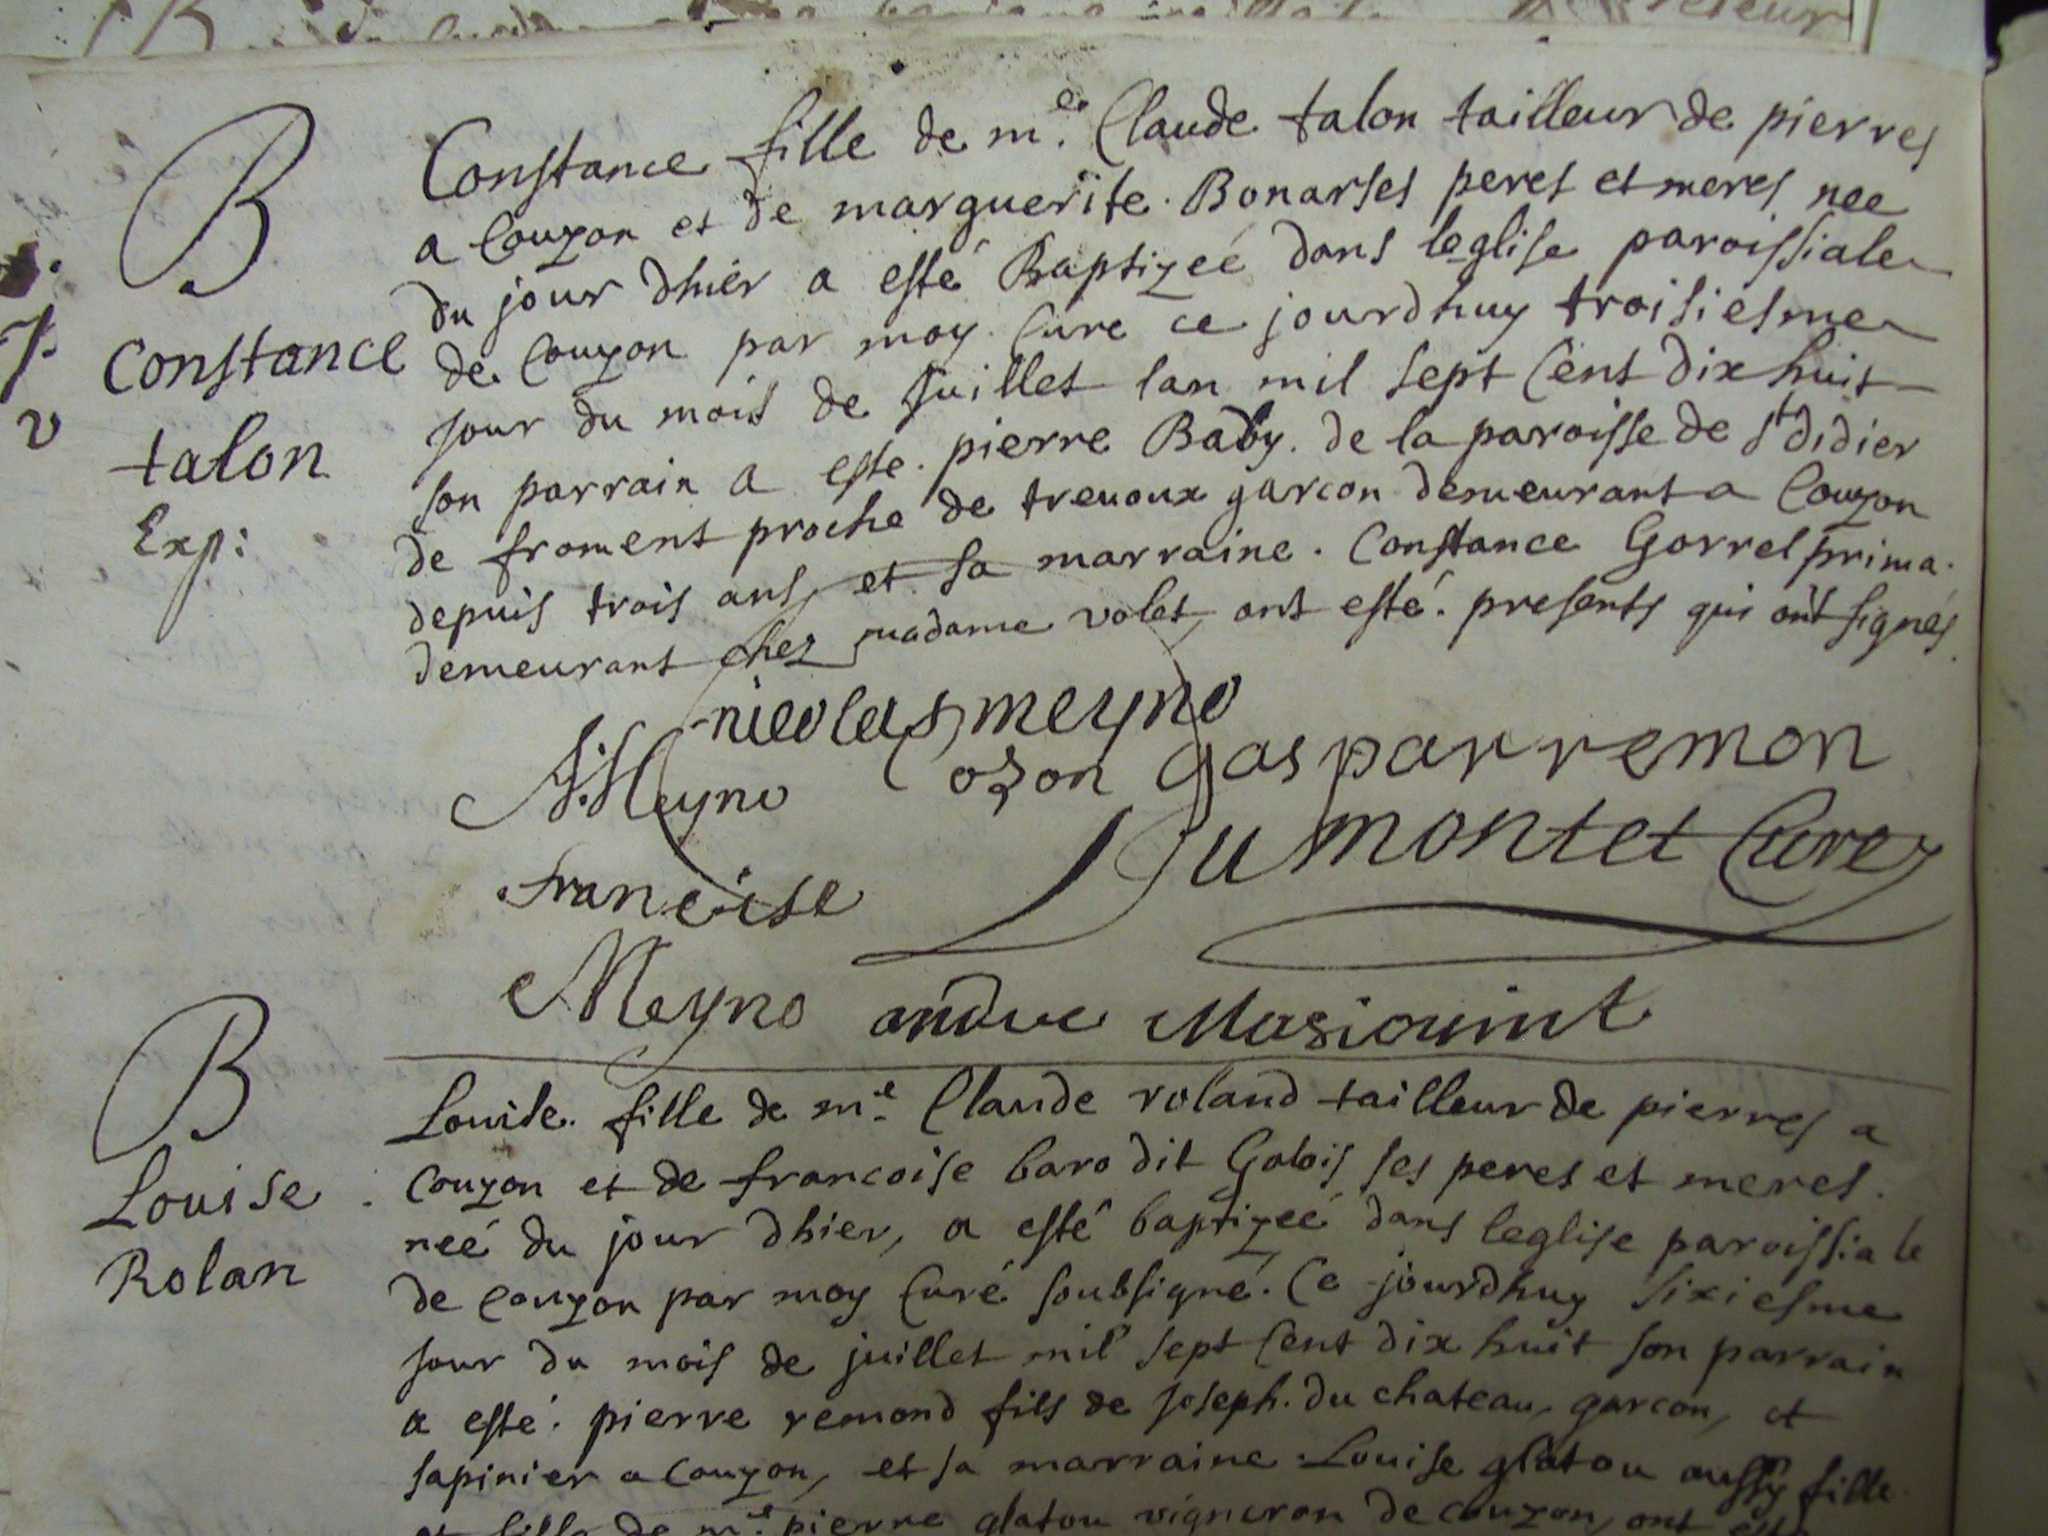 B
Constance
talon
Exp:
Constance fille de m.e Claude talon tailleur de pierres
a Couzon et de marguerite. Bonarses peres et meres nee
du jour dhier a esté Baptizeé dans leglise paroissiale
de Couzon par moy Curé ce jourdhuy troisiesme
jour du mois de Juillet lan mil sept Cent dixhuit
son parrain a esté. pierre Baby. de la paroisse de st didier
de froment proche de treuoux garcon demeurant a Couzon
depuis trois ans, et sa marraine. Constance Gorrel prima.
demeurant chez madame volet, ont esté. presents qui ont signés
nicolas meyno
Meyno ozon gaspar remon
Dumontet Curé
francoise
Meyno andre
B
Louise
Rolan
Louise. fille de m.e Claude roland tailleur de pierres a
Couzon et de francoise baro dit Galois ses peres et meres.
neé du jour dhier, a esté baptizeé dans leglise paroissiale
de Couzon par moy Curé soubsigné. Ce jourdhuy sixiesme
jour du mois de juillet mil sept Cent dix huit son parrain
a esté. pierre remond fils de joseph. du chateau, garcon, et
sapinier a Couzon, et sa marraine Louise glatou aussy fille
et fille de m.e pierre glatou vigneron de couzon, ont esté